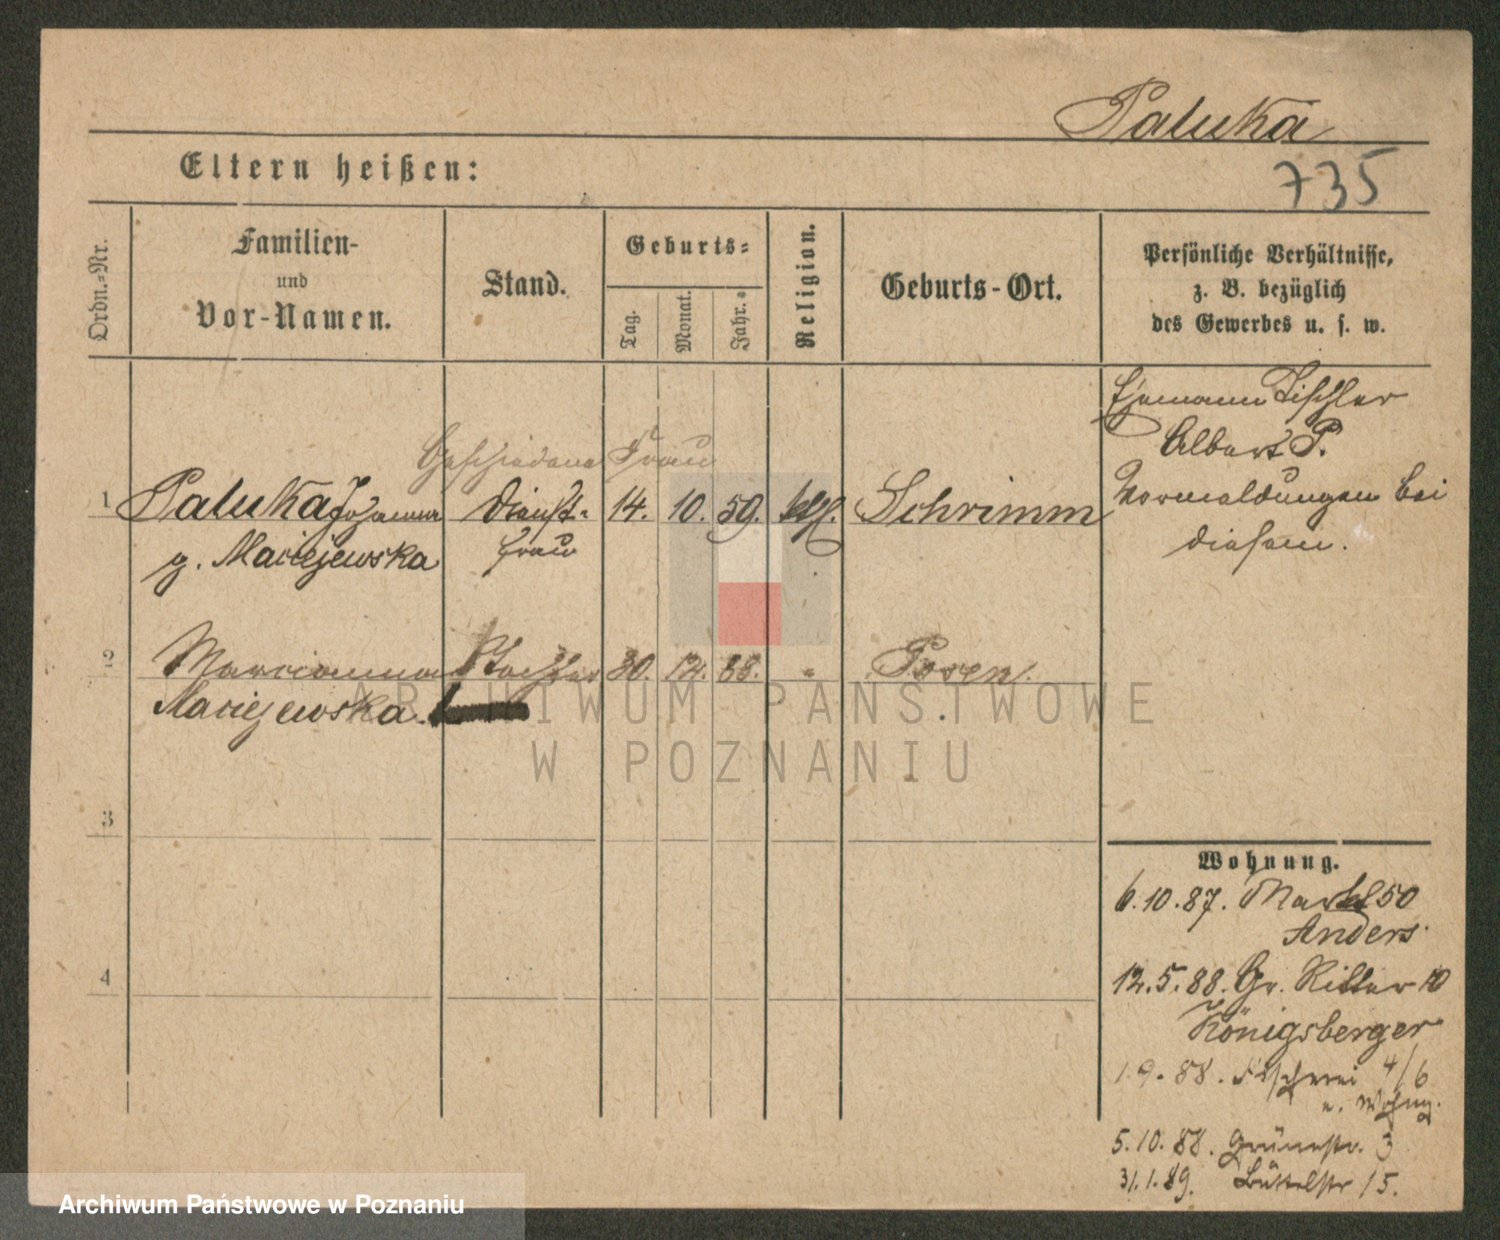 Paluka
Eltern heißen:
735
Ordn.-Nr.
Familien-
und
Vor-Namen.
Stand.
Geburts-
Tag.
Monat.
Jahr.
Religion.
Geburts-Ort.
Persönliche Verhältnisse,
z. B. bezüglich
des Gewerbes u. s. w.
Ehemann Tischler
Albert P.
Vermeldungen bei
diesem.
Geschiedene Frau
1 Paluka Johanna Dienst- 14. 10. 59. kath. Schrimm
g. Maciejewska frau
2 Marianna Tochter 30. 12. 88. " Posen.
Maciejewska.
3
4
Wohnung.
6.10.87. Markt 50
Anders
12.5.88. Gr. Ritter 10
Königsberger
1.9.88. Fischerei 4/6
u. Wohng.
5.10.88. Grünestr. 3
31.1.89. Büttelstr 15.
ARCHIWUM PAŃSTWOWE
W POZNANIU
Archiwum Państwowe w Poznaniu